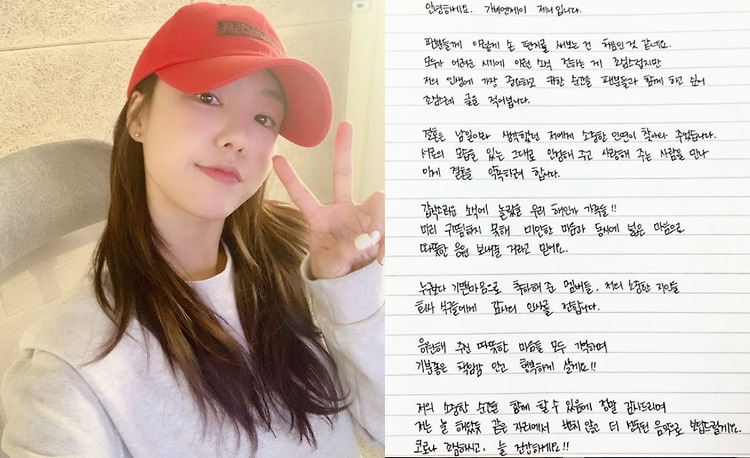 안녕하세요. 가비엔제이 제니입니다.
팬분들께 이렇게 손 편지를 써보는 건 처음인것 같네요.
모두가 어려운 시기에 이런 소식 전하는 게 조심스럽지만
저의 인생에 가장 중요하고 귀한 순간을 팬분들과 함께 하고 싶어
조심스레 글을 적어봅니다.
결혼은 남일이라 생각했던 저에게 소중한 인연이 찾아와 주었습니다.
서로의 모습을 있는 그대로 인정해 주고 사랑해 주는 사람을 만나
이제 결혼을 약속하려 합니다.
갑작스러운 소식에 놀랐을 우리 가족들!!
미리 귀띔하지 못해 미안한 마음과 동시에 넓은 마음으로
따뜻한 응원 보내줄 거라고 믿어요.
누구보다 기쁜마음으로 축하해 준 멤버들, 저의 소중한 지인들
회사 식구들에게 감사의 인사를 전합니다.
응원해 주신 따뜻한 마음들 모두 기억하며
기분좋은 책임감 안고 행복하게 살게요!!
저의 소중한 순간을 함께 할 수 있음에 정말 감사드리며
저는 늘 해왔듯 같은 자리에서 변치 않고 더 성숙된 음악으로 보답드릴게요.
코로나 조심하시고, 늘 건강하세요!!